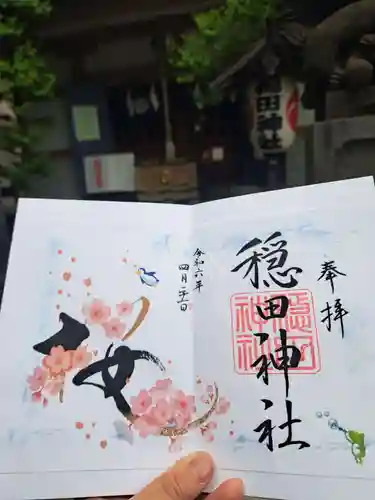 奉拝
穏田神社
穏田神社
令和六年
四月二十一日
田神社